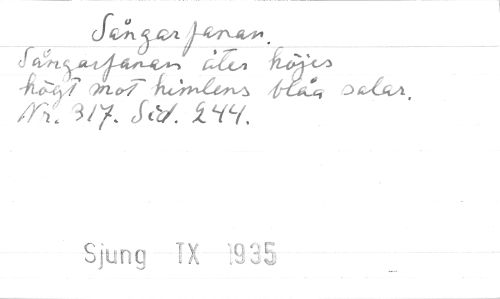 Sångarfanan.
Sångarfanan åter höjes
högt mot himlens blåa salar.
Nr. 317. Sid. 244.
Sjung IX 1935